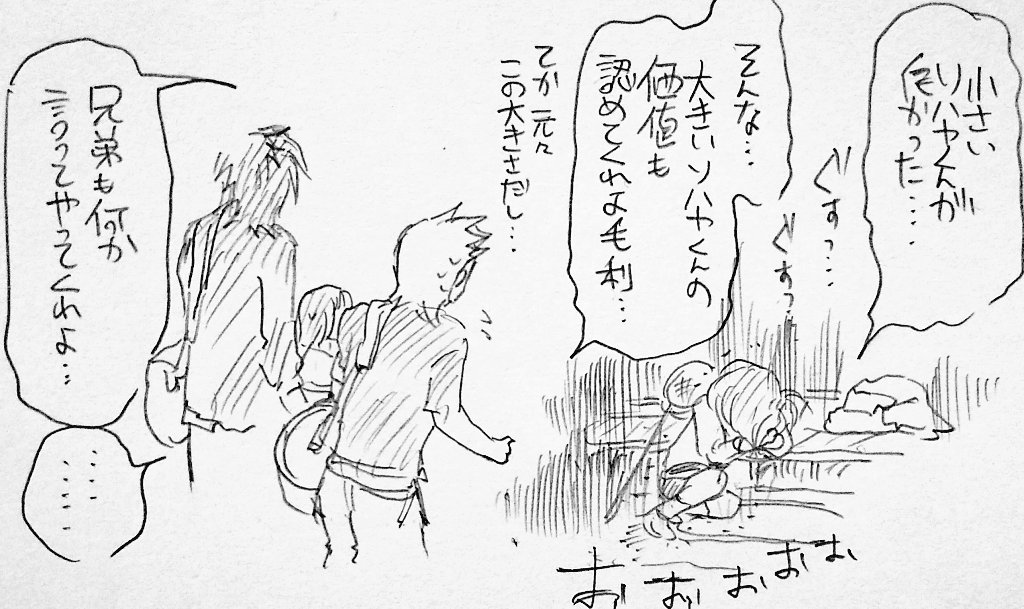 小さい
ソハヤくんが
良かった…
ぐすっ…
ぐすっ…
そんな…
大きいソハヤくんの
価値も
認めてくれよ毛利…
てか元々
この大きさだし…
兄弟も何か
言ってやってくれよ…
……
……
おおおおお